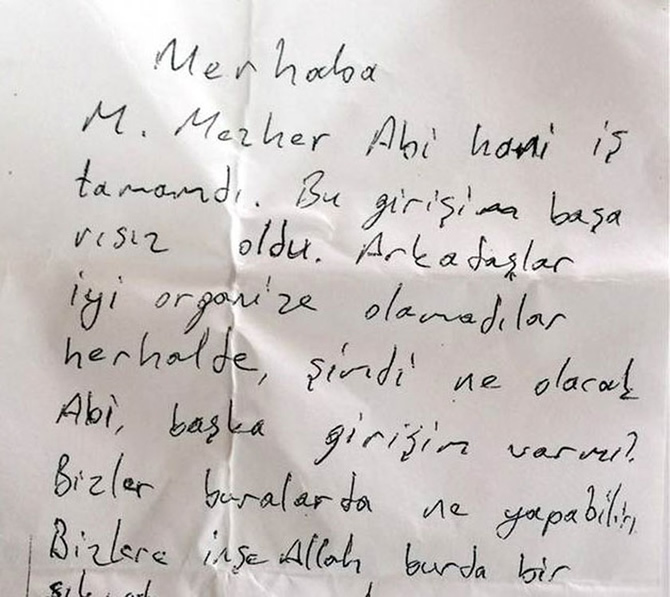 Merhaba
M. Mezher Abi hani iş
tamamdı. Bu girişim başa
rısız oldu. Arkadaşlar
iyi organize olamadılar
herhalde, şimdi ne olacak
Abi, başka girişim varmı?
Bizler buralarda ne
Bizlere inşeAllah burda bir